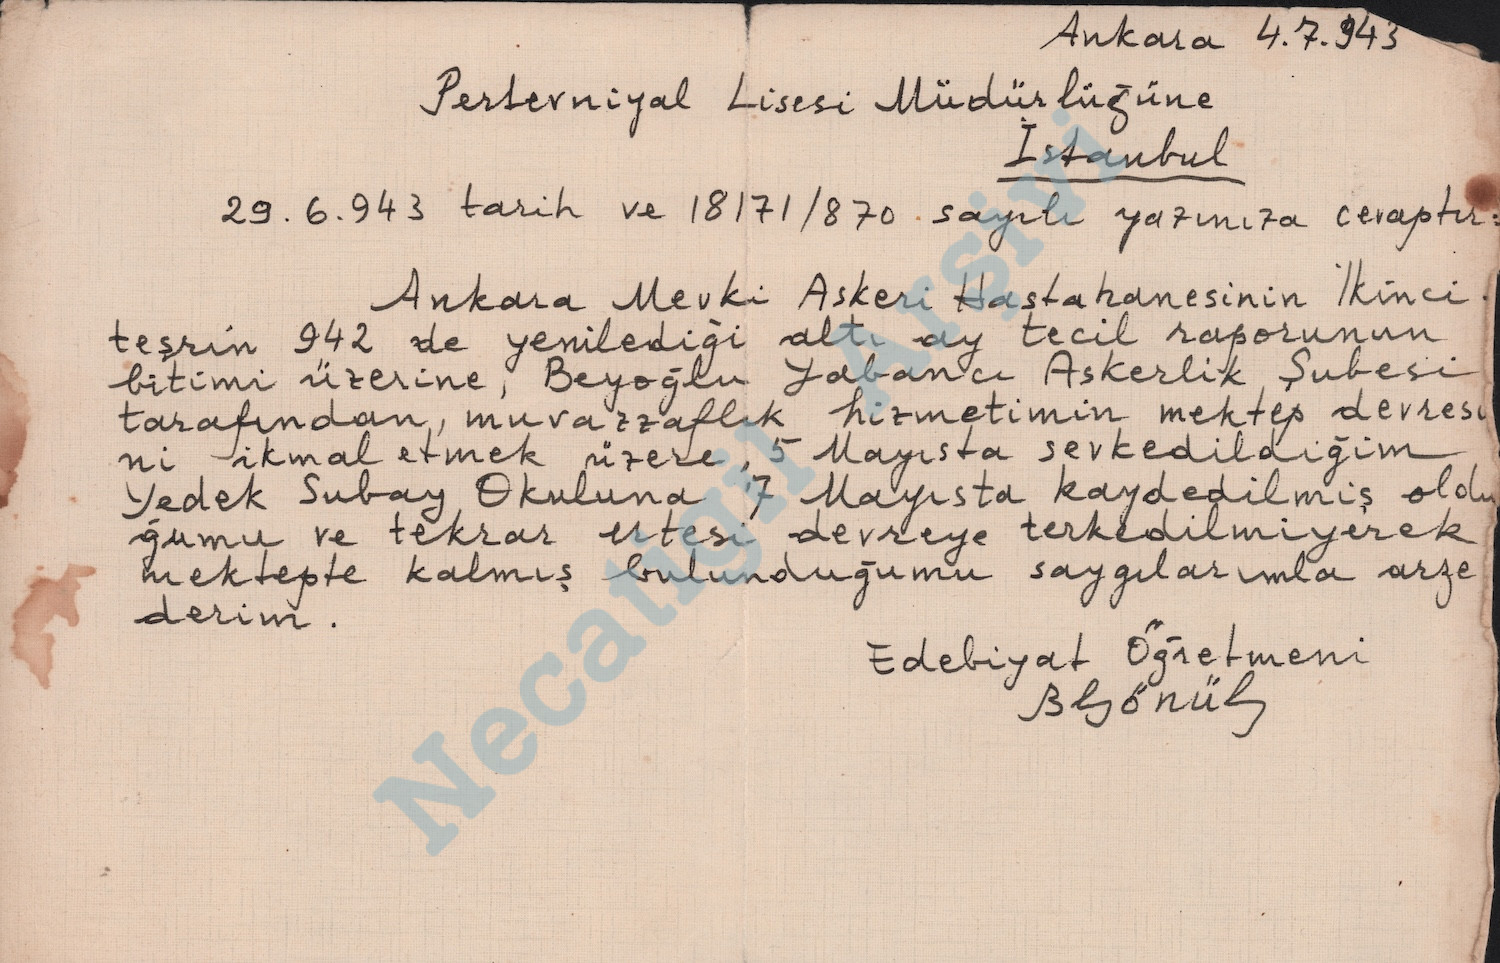 Ankara 4.7.943
Pertevniyal Lisesi Müdürlüğüne
İstanbul
29.6.943 tarih ve 18171/870 sayılı yazınıza cevaptır:
Ankara Mevki Askeri Hastahanesinin İkinci
teşrin 942 de yenilediği altı ay tecil raporunun
bitimi üzerine, Beyoğlu Yabancı Askerlik Şubesi
tarafından, muvazzaflık hizmetimin mektep devresi
ni ikmal etmek üzere, 5 Mayısta sevkedildiğim
Yedek Subay Okuluna 7 Mayısta kaydedilmiş oldu
ğumu ve tekrar ertesi devreye terkedilmiyerek
mektepte kalmış bulunduğumu saygılarımla arze
derim.
Edebiyat Öğretmeni
BGönül
Necatigil Arşivi